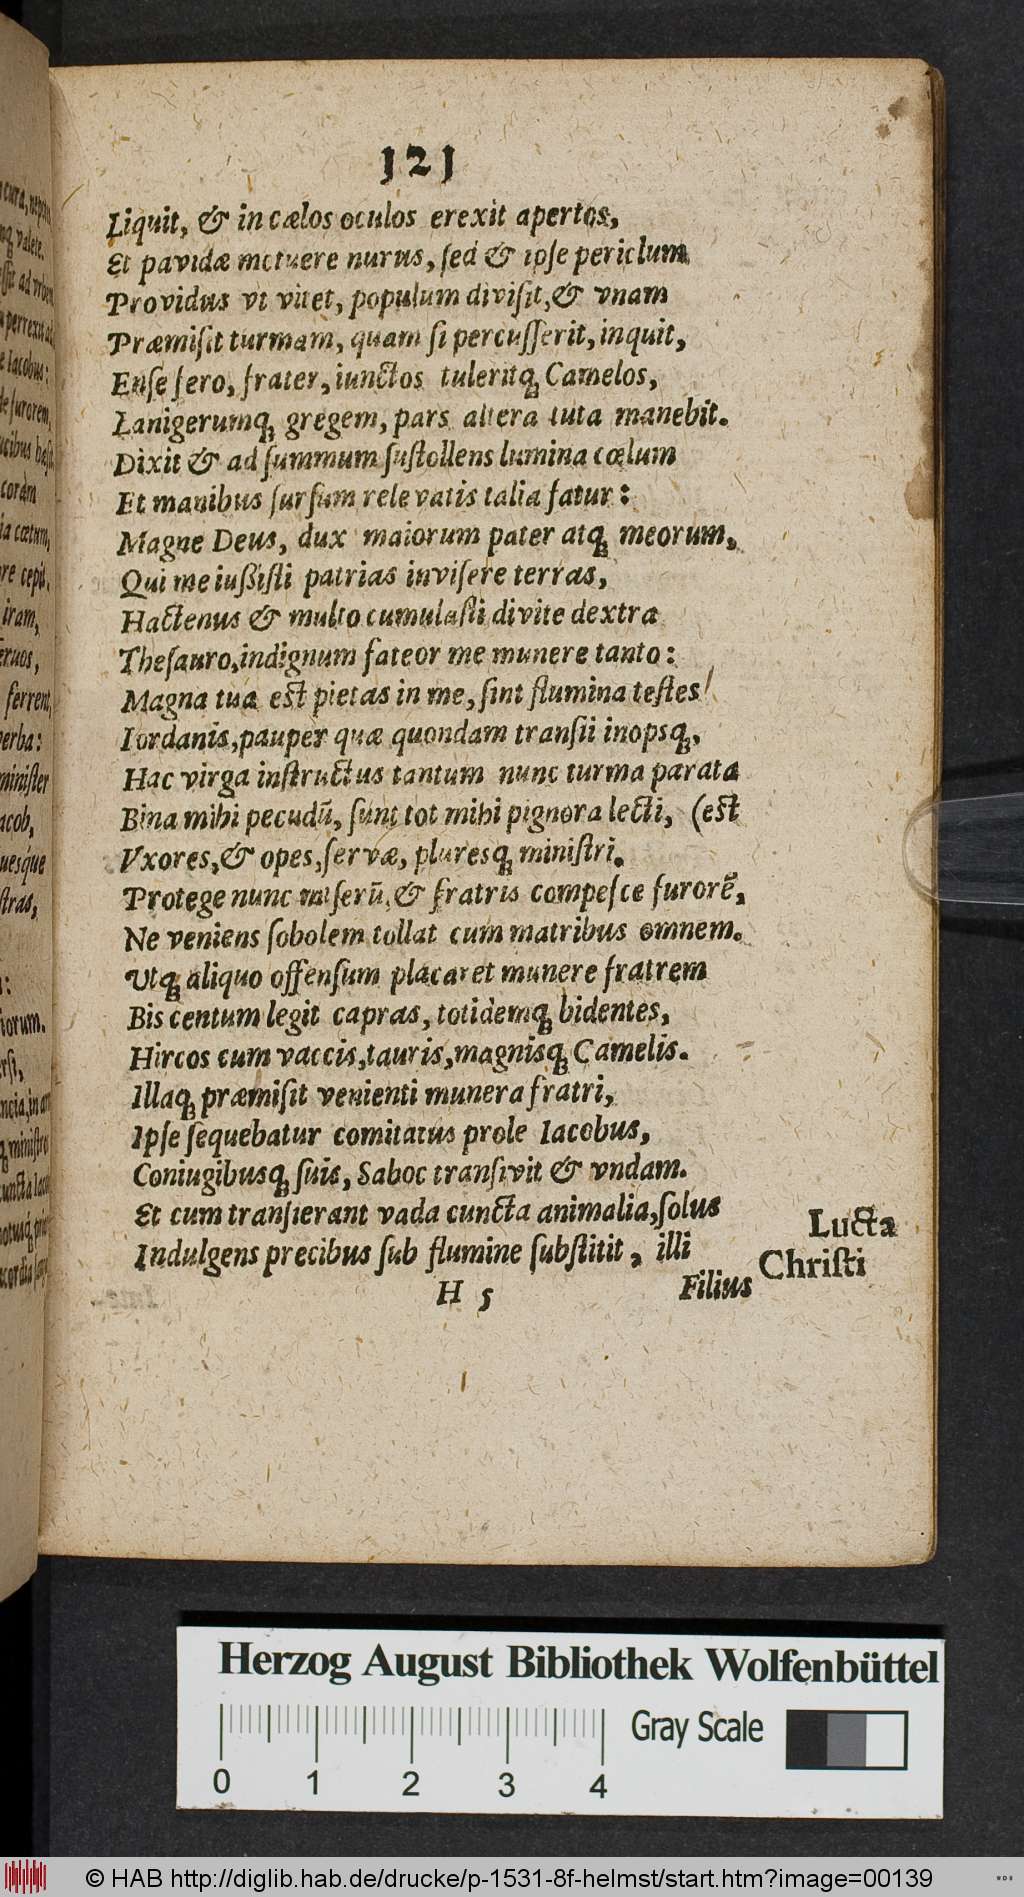 121
Liquit, & in cælos oculos erexit apertos,
Et pavidæ metuere nurus, ſed & ipſe periclum
Providus vt vitet, populum diviſit, & vnam
Præmiſit turmam, quam ſi percuſſerit, inquit,
Enſe fero, frater, iunctos tuleritq́ꝫ Camelos,
Lanigerumq́ꝫ gregem, pars altera tuta manebit.
Dixit & ad ſummum ſuſtollens lumina cœlum
Et manibus ſurſum relevatis talia fatur:
Magne Deus, dux maiorum pater atq́ꝫ meorum,
Qui me iußiſti patrias inviſere terras,
Hactenus & multo cumulaſti divite dextra
Theſauro, indignum fateor me munere tanto:
Magna tua est pietas in me, ſint flumina teſtes
Iordanis, pauper quæ quondam tranſii inopsq́ꝫ,
Hac virga inſtructus tantum nunc turma parata
Bina mihi pecudū, ſunt tot mihi pignora lecti, (est
Vxores, & opes, ſervæ, pluresq́ꝫ miniſtri.
Protege nunc miſerū, & fratris compeſce furorē,
Ne veniens ſobolem tollat cum matribus omnem.
Utq́ꝫ aliquo offenſum placaret munere fratrem
Bis centum legit capras, totidemq́ꝫ bidentes,
Hircos cum vaccis, tauris, magnisq́ꝫ Camelis.
Illaq́ꝫ præmiſit venienti munera fratri,
Ipſe ſequebatur comitatus prole Iacobus,
Coniugibusq́ꝫ ſuis, Saboc tranſivit & vndam.
Et cum tranſierant vada cuncta animalia, ſolus
Indulgens precibus ſub flumine ſubſtitit, illi
Lucta
Chriſti
H 5
Filius
Herzog August Bibliothek Wolfenbüttel
Gray Scale
0 1 2 3 4
© HAB http://diglib.hab.de/drucke/p-1531-8f-helmst/start.htm?image=00139